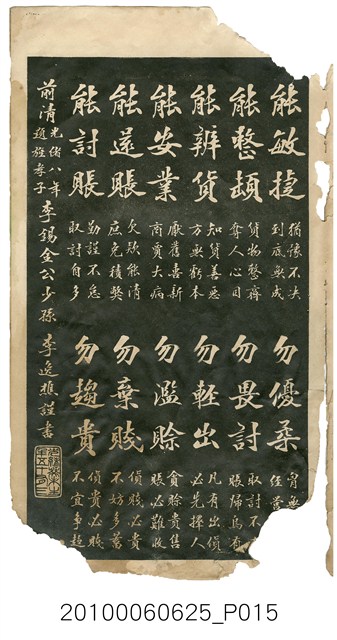 能敏捷
猶豫不決
到底無成
勿優柔
能整頓
貨物整齊
奪人心目
勿畏討
取討不
賬歸烏有
能辨貨
知貨美惡
方無虧本
勿輕出
凡有出貨
必先擇人
能安業
厭舊喜新
商賈大病
勿濫賒
貪賒貴售
賬必難收
能還賬
欠款能清
庶免積弊
勿棄賤
價賤必貴
不妨多蓄
能討賬
勤謹不怠
取討自多
勿趨貴
價貴必賤
不宜爭趨
前清光緒八年
題旌孝子
李錫全公少孫 李逸樵謹書
20100060625_P015